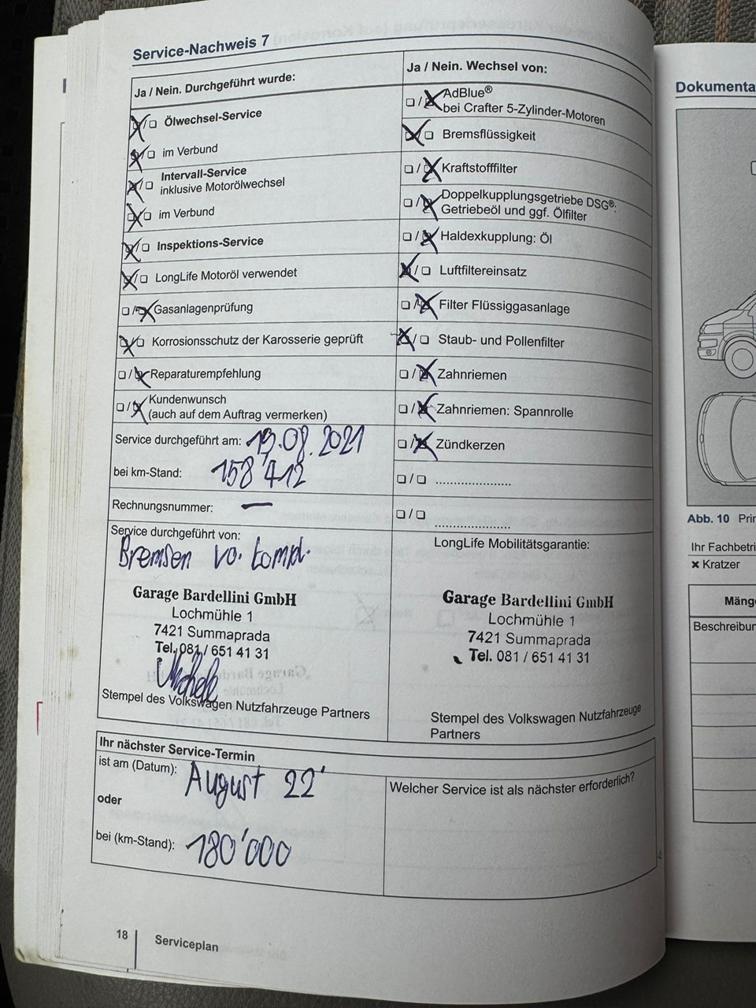 Service-Nachweis 7
Ja / Nein. Durchgeführt wurde:
Ölwechsel-Service
im Verbund
Intervall-Service
inklusive Motorölwechsel
im Verbund
Inspektions-Service
LongLife Motoröl verwendet
Gasanlagenprüfung
Korrosionsschutz der Karosserie geprüft
Reparaturempfehlung
Kundenwunsch
(auch auf dem Auftrag vermerken)
Service durchgeführt am: 19.08.2021
bei km-Stand: 158'412
Rechnungsnummer: —
Service durchgeführt von:
Bremsen vo. kompl.
Garage Bardellini GmbH
Lochmühle 1
7421 Summaprada
Tel. 081 / 651 41 31
Stempel des Volkswagen Nutzfahrzeuge Partners
Ja / Nein. Wechsel von:
AdBlue®
bei Crafter 5-Zylinder-Motoren
Bremsflüssigkeit
Kraftstofffilter
Doppelkupplungsgetriebe DSG®:
Getriebeöl und ggf. Ölfilter
Haldexkupplung: Öl
Luftfiltereinsatz
Filter Flüssiggasanlage
Staub- und Pollenfilter
Zahnriemen
Zahnriemen: Spannrolle
Zündkerzen
☐ / ☐ .....................
☐ / ☐ .....................
LongLife Mobilitätsgarantie:
Garage Bardellini GmbH
Lochmühle 1
7421 Summaprada
Tel. 081 / 651 41 31
Stempel des Volkswagen Nutzfahrzeuge
Partners
Ihr nächster Service-Termin
ist am (Datum): August 22'
oder
bei (km-Stand): 180'000
Welcher Service ist als nächster erforderlich?
18 Serviceplan
Dokumenta
Abb. 10 Prin
Ihr Fachbetri
× Kratzer
Mänge
Beschreibur